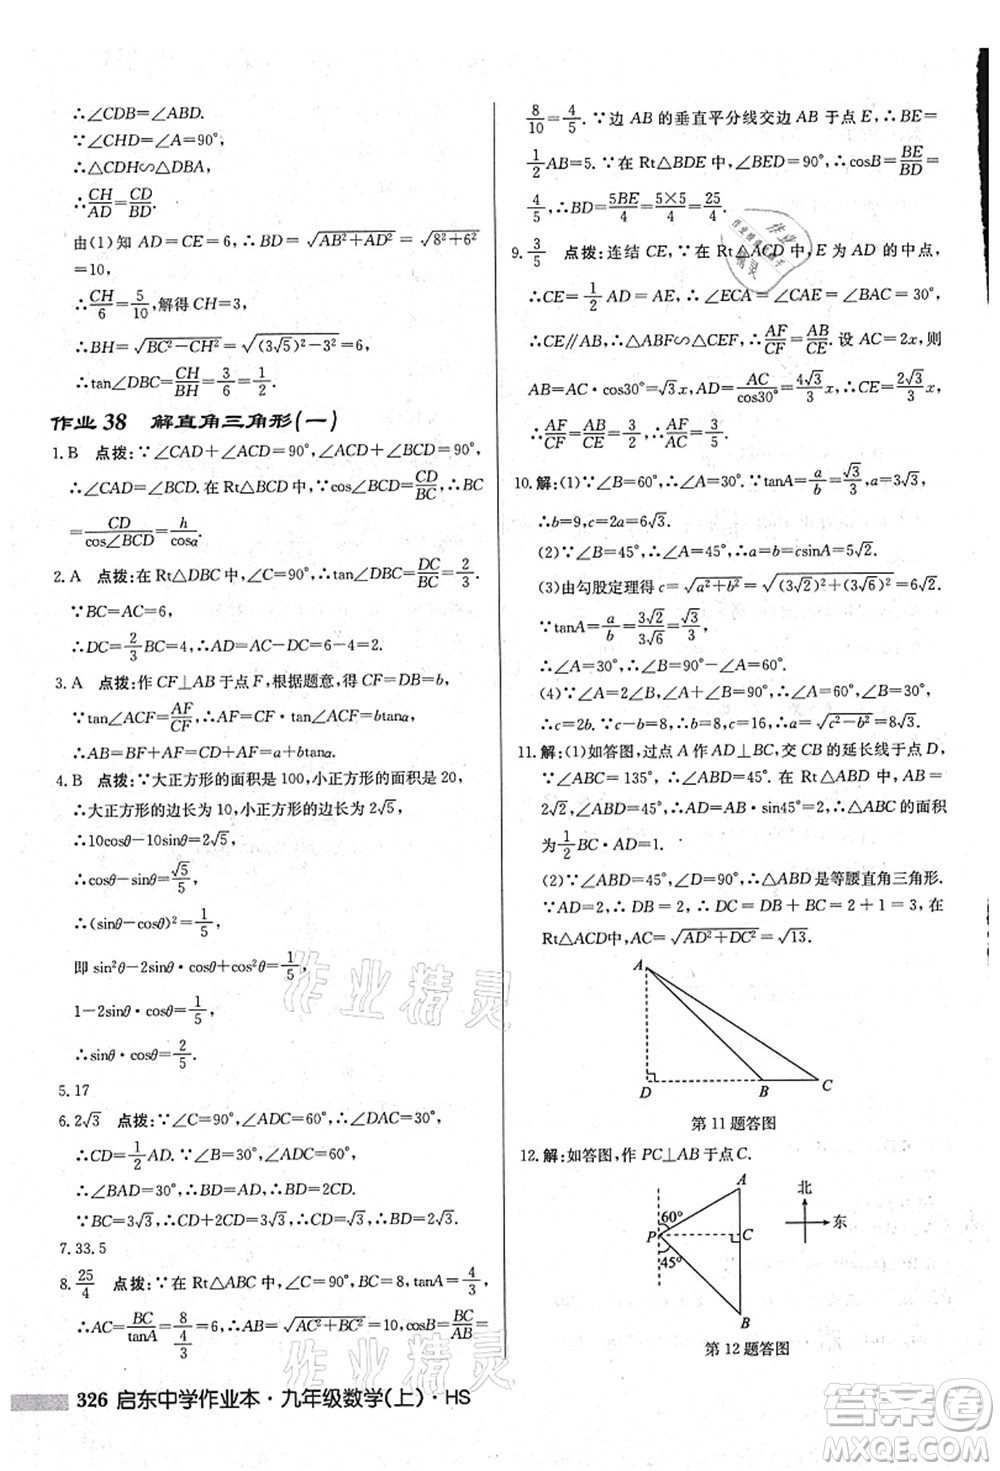 ∴∠CDB=∠ABD.
∵∠CHD=∠A=90°,
∴△CDH∽△DBA,
∴CH/AD=CD/BD.
由(1)知 AD=CE=6,∴BD=√(AB²+AD²)=√(8²+6²)
=10,
∴CH/6=5/10,解得CH=3,
∴BH=√(BC²-CH²)=√((3√5)²-3²)=6,
∴tan∠DBC=CH/BH=3/6=1/2.
作业 38 解直角三角形(一)
1.B 点拨:∵∠CAD+∠ACD=90°,∠ACD+∠BCD=90°,
∴∠CAD=∠BCD.在Rt△BCD中,∵cos∠BCD=CD/BC,∴BC
=CD/cos∠BCD=h/cosα.
2.A 点拨:在Rt△DBC中,∠C=90°,tan∠DBC=DC/BC=2/3.
∵BC=AC=6,
∴DC=2/3BC=4,∴AD=AC-DC=6-4=2.
3.A 点拨:作CF⊥AB于点F,根据题意,得CF=DE=b,
∵tan∠ACF=AF/CF,∴AF=CF·tan∠ACF=btanα,
∴AB=BF+AF=CD+AF=a+btanα.
4.B 点拨:∵大正方形的面积是100,小正方形的面积是20,
∴大正方形的边长为10,小正方形的边长为2√5,
∴10cosθ-10sinθ=2√5,
∴cosθ-sinθ=√5/5,
∴(sinθ-cosθ)²=1/5,
即sin²θ-2sinθ·cosθ+cos²θ=1/5,
1-2sinθ·cosθ=1/5,
∴sinθ·cosθ=2/5.
5.17
6.2√3 点拨:∵∠C=90°,∠ADC=60°,∴∠DAC=30°,
∴CD=1/2AD.∵∠B=30°,∠ADC=60°,
∴∠BAD=30°,∴BD=AD,∴BD=2CD.
∵BC=3√3,∴CD+2CD=3√3,∴CD=√3,∴AD=2√3.
7.33.5
8.25/4 点拨:∵在Rt△ABC中,BC=8,tanA=4/3,
∴AC=BC/tanA=8/(4/3)=6,∴AB=√(AC²+BC²)=10,cosB=BC/AB=
326 启东中学作业本·九年级数学(上)·HS
8/10=4/5.∵边AB的垂直平分线交边AB于点E,∴BE=
1/2AB=5.∵在Rt△BDE中,∠BED=90°,∴cosB=BE/BD=
4/5,∴BD=5BE/4=5×5/4=25/4.
9.3/5 点拨:连结CE,∵在Rt△ADC中,E为AD的中点,
∴CE=1/2AD=AE,∴∠ECA=∠EAC=∠BAC=30°,
∴CE∥AB,∴△ABF∽△CEF,∴AF/CF=AB/CE.设AC=2x,则
AB=AC·cos30°=√3x,AD=AC/cos30°=4√3/3x,∴CE=2√3/3x,
∴AF/CF=AB/CE=3/2,∴AF/AC=3/5.
10.解:(1)∵∠B=30°,∴∠A=60°,∵tanA=a/b=√3,a=3√3,
∴b=9,c=2a=6√3.
(2)∵∠B=45°,∴∠A=45°,∴b=a=csinA=5√2.
(3)由勾股定理得c=√(a²+b²)=√((3√2)²+(3√6)²)=6√2.
∵tanA=a/b=3√2/3√6=√3/3,
∴∠A=30°,∴∠B=90°-∠A=60°.
(4)∵∠C=90°,∠A=60°,∴∠B=90°-∠A=30°,
∴c=2b.∵b+c=24,∴b=8,c=16,∴a=√(c²-b²)=8√3.
11.解:(1)如答图,过点A作AD⊥BC,交CB的延长线于点D,
∵∠ABC=135°,∴∠ABD=45°.在Rt△ABD中,AB=
2√2,∠ABD=45°,∴AD=AB·sin45°=2,∴△ABC的面积
为1/2BC·AD=1.
(2)∵∠ABD=45°,∠D=90°,∴△ABD是等腰直角三角形.
∵AD=2,∴DB=2,∴DC=DB+BC=2+1=3,在
Rt△ACD中,AC=√(AD²+DC²)=√13.
A
D
B
C
第11题答图
12.解:如答图,作PC⊥AB于点C.
A
60°
P
C
45°
B
北
东
第12题答图
作业精灵
作业精灵
答案圈
MXQE.COM